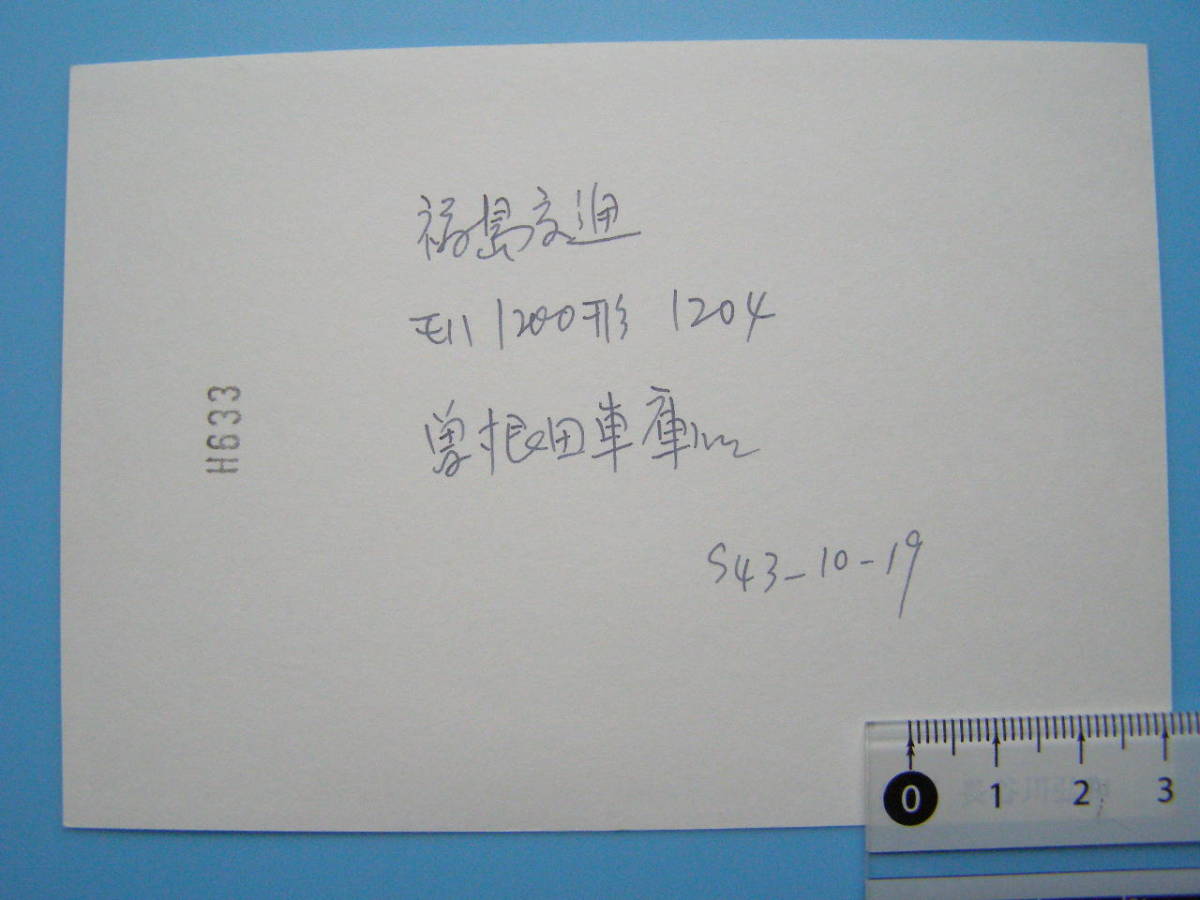 福島交通
モハ1200形 1204
曽根田車庫にて
S43-10-19
H633
0 1 2 3